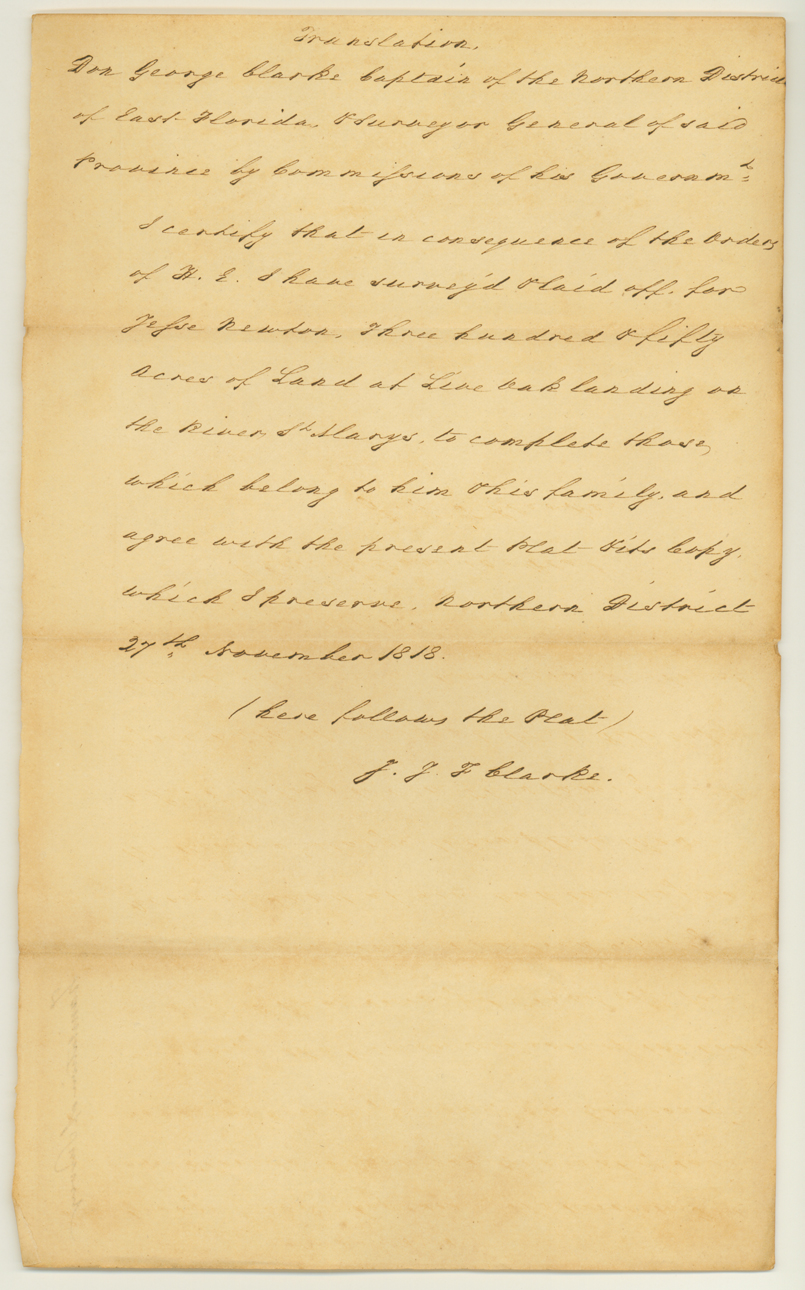 Translation.
Don George Clarke Captain of the Northern District
of East Florida, & Surveyor General of said
Province by Commissions of his Governmt:
I certify that in consequence of the Orders
of H. E. I have survey'd & laid off. for
Jesse Newton, Three hundred & fifty
Acres of Land at Live Oak landing on
the River, St. Marys, to complete those,
which belong to him & his family, and
agree with the present Plat & its Copy,
which I preserve, Northern District
27th November 1818.
(here follows the Plat)
J. J. F Clarke.